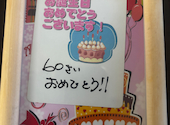 お誕生日
おめでとう
ございます！
60さい
おめひとう!!